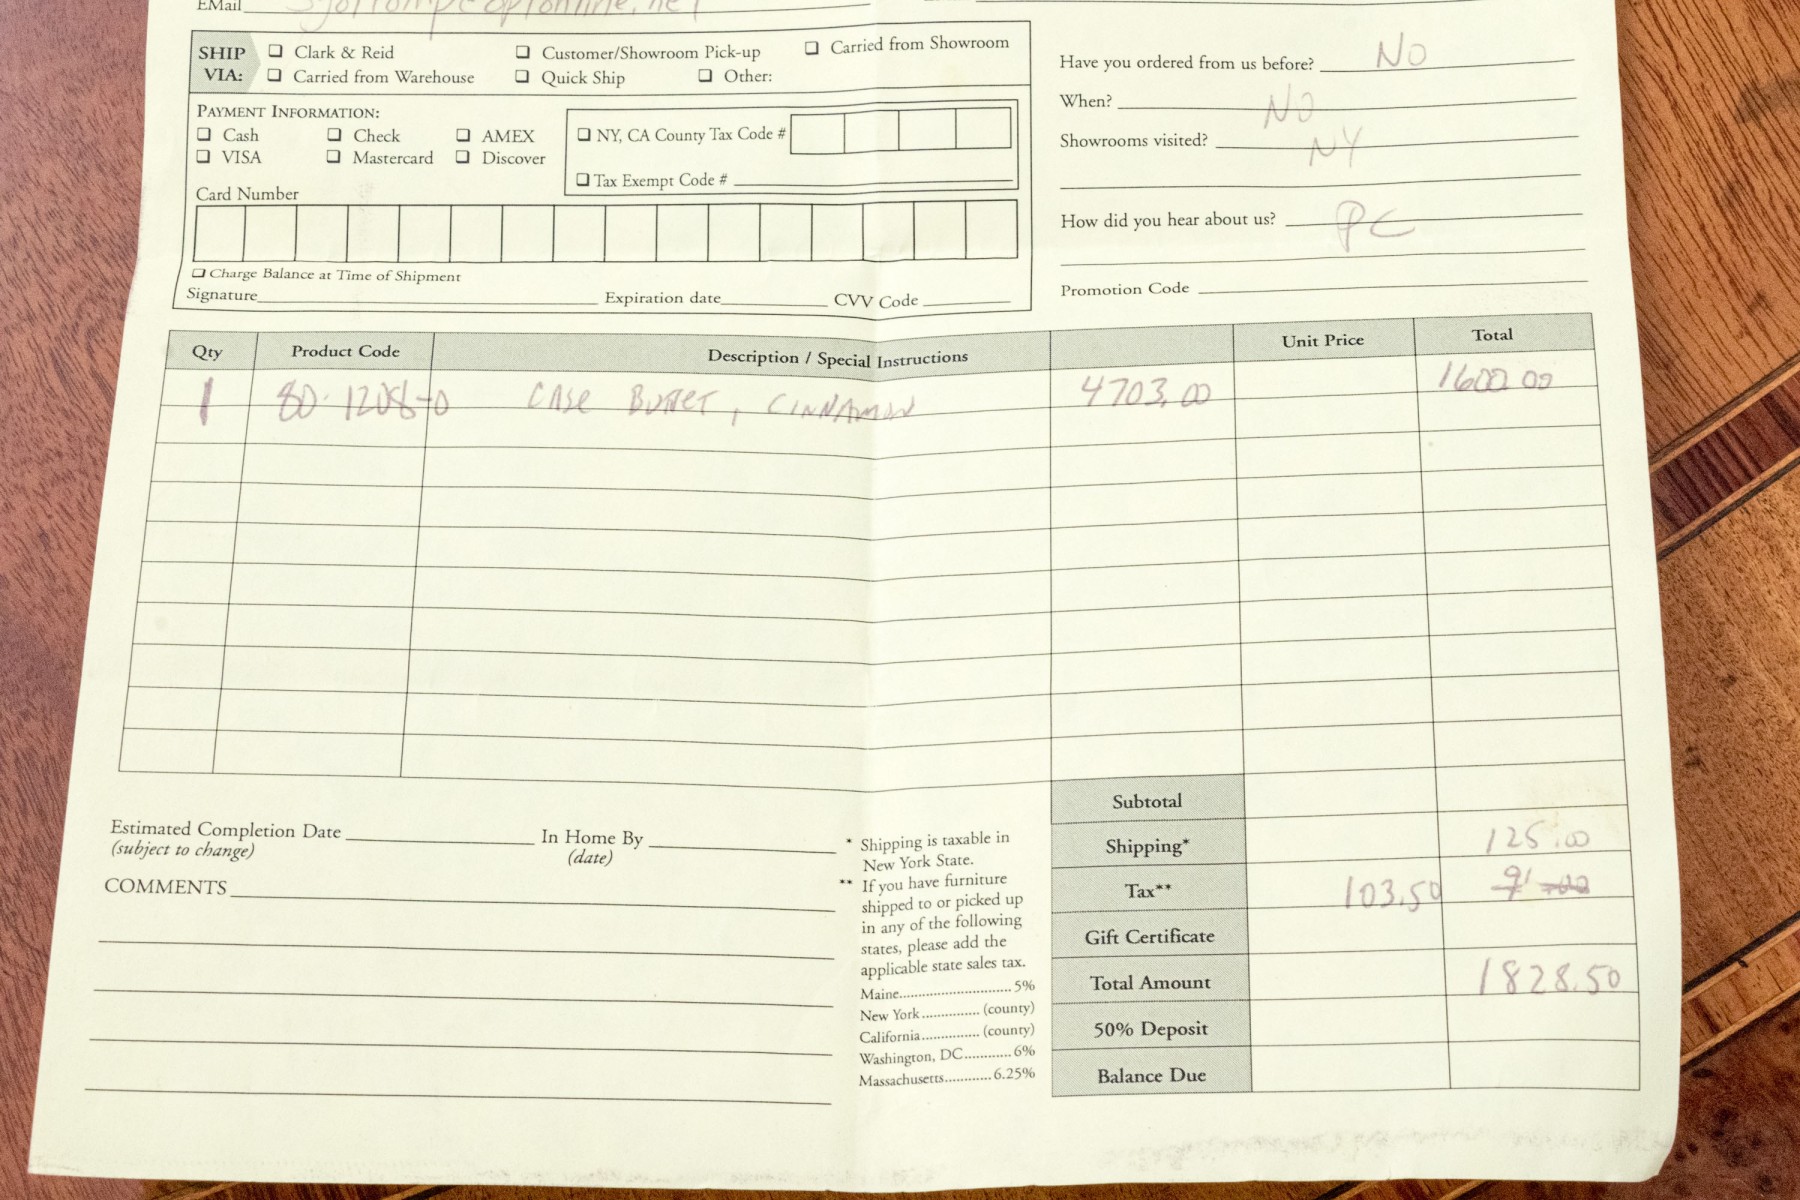 EMail
SHIP VIA:
❏ Clark & Reid ❏ Customer/Showroom Pick-up ❏ Carried from Showroom
❏ Carried from Warehouse ❏ Quick Ship ❏ Other:
PAYMENT INFORMATION:
❏ Cash ❏ Check ❏ AMEX
❏ VISA ❏ Mastercard ❏ Discover
❏ NY, CA County Tax Code #
❏ Tax Exempt Code #
Card Number
❏ Charge Balance at Time of Shipment
Signature Expiration date CVV Code
Have you ordered from us before? NO
When? NO
Showrooms visited? NY
How did you hear about us? PC
Promotion Code
Qty Product Code Description / Special Instructions Unit Price Total
1 80-1208-0 CASE BUFFET, CINNAMON 4703.00 1600.00
Subtotal
Shipping* 125.00
Tax** 103.50
Gift Certificate
Total Amount 1828.50
50% Deposit
Balance Due
Estimated Completion Date In Home By
(subject to change) (date)
COMMENTS
* Shipping is taxable in
New York State.
** If you have furniture
shipped to or picked up
in any of the following
states, please add the
applicable state sales tax.
Maine.......................... 5%
New York............... (county)
California............... (county)
Washington, DC............ 6%
Massachusetts............ 6.25%